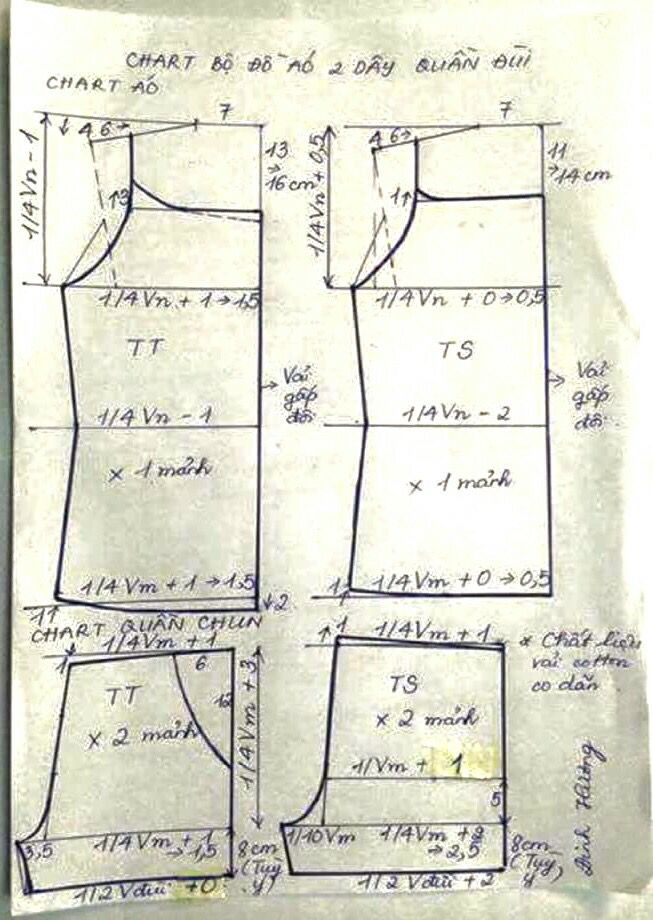 CHART BỘ ĐỒ AÓ 2 DÂY QUẦN ĐÙI
CHART AÓ
7
↓ 4 6→
1/4 Vn - 1
13
→
16 cm
↑3
1/4 Vn + 1→1,5
TT
→ Vải
gấp
đôi
1/4 Vn - 1
x 1 mảnh
1/4 Vm + 1→1,5
1↑
↓2
7
4 6→
1/4 Vn + 0,5
11
→
14 cm
1↑
1/4 Vn + 0→0,5
TS
→ Vải
gấp
đôi
1/4 Vn - 2
x 1 mảnh
1
1/4 Vm + 0→0,5
CHART QUẦN CHUN
1/4 Vm + 1
1
6
TT
12
x 2 mảnh
1/4 Vm + 3
1/4 Vm + 1
→ 1,5
3,5
8cm
(Tùy
ý)
1/2 Vđùi +0
↑1
1/4 Vm + 1
* Chất liệu
vải cotton
co dãn
TS
x 2 mảnh
1/Vm + 1
5
1/10 Vm
→ 2,5
8cm
(Tùy
ý)
1/2 Vđùi + 2
Đinh Hường